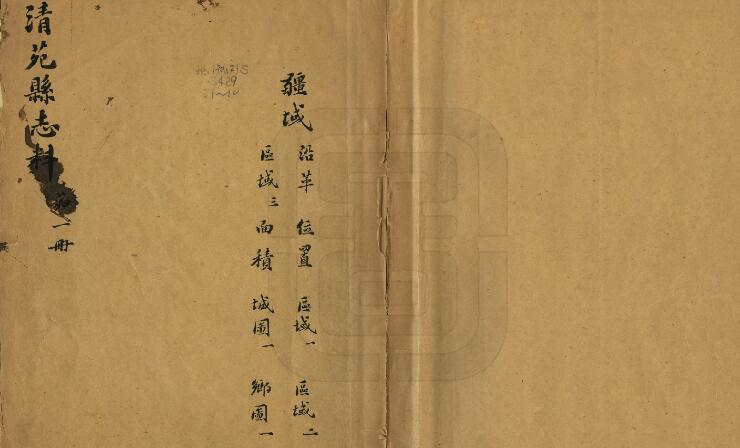 疆域
沿革 位置 區域一 區域二
區域三 面積 城圖一 鄉圖一
清苑縣志料
第一冊